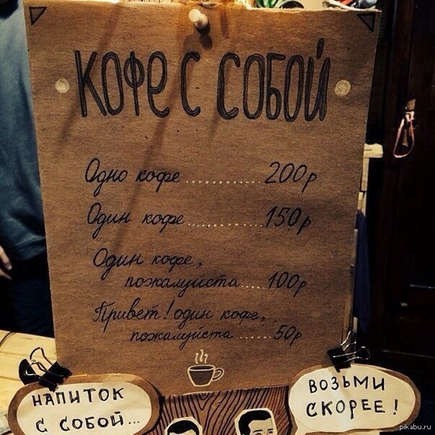 КОФЕ С СОБОЙ
Одно кофе ............ 200р
Один кофе ............ 150р
Один кофе,
пожалуйста ...... 100р
Привет! один кофе,
пожалуйста ........ 50р
НАПИТОК
С СОБОЙ...
ВОЗЬМИ
СКОРЕЕ!
pikabu.ru